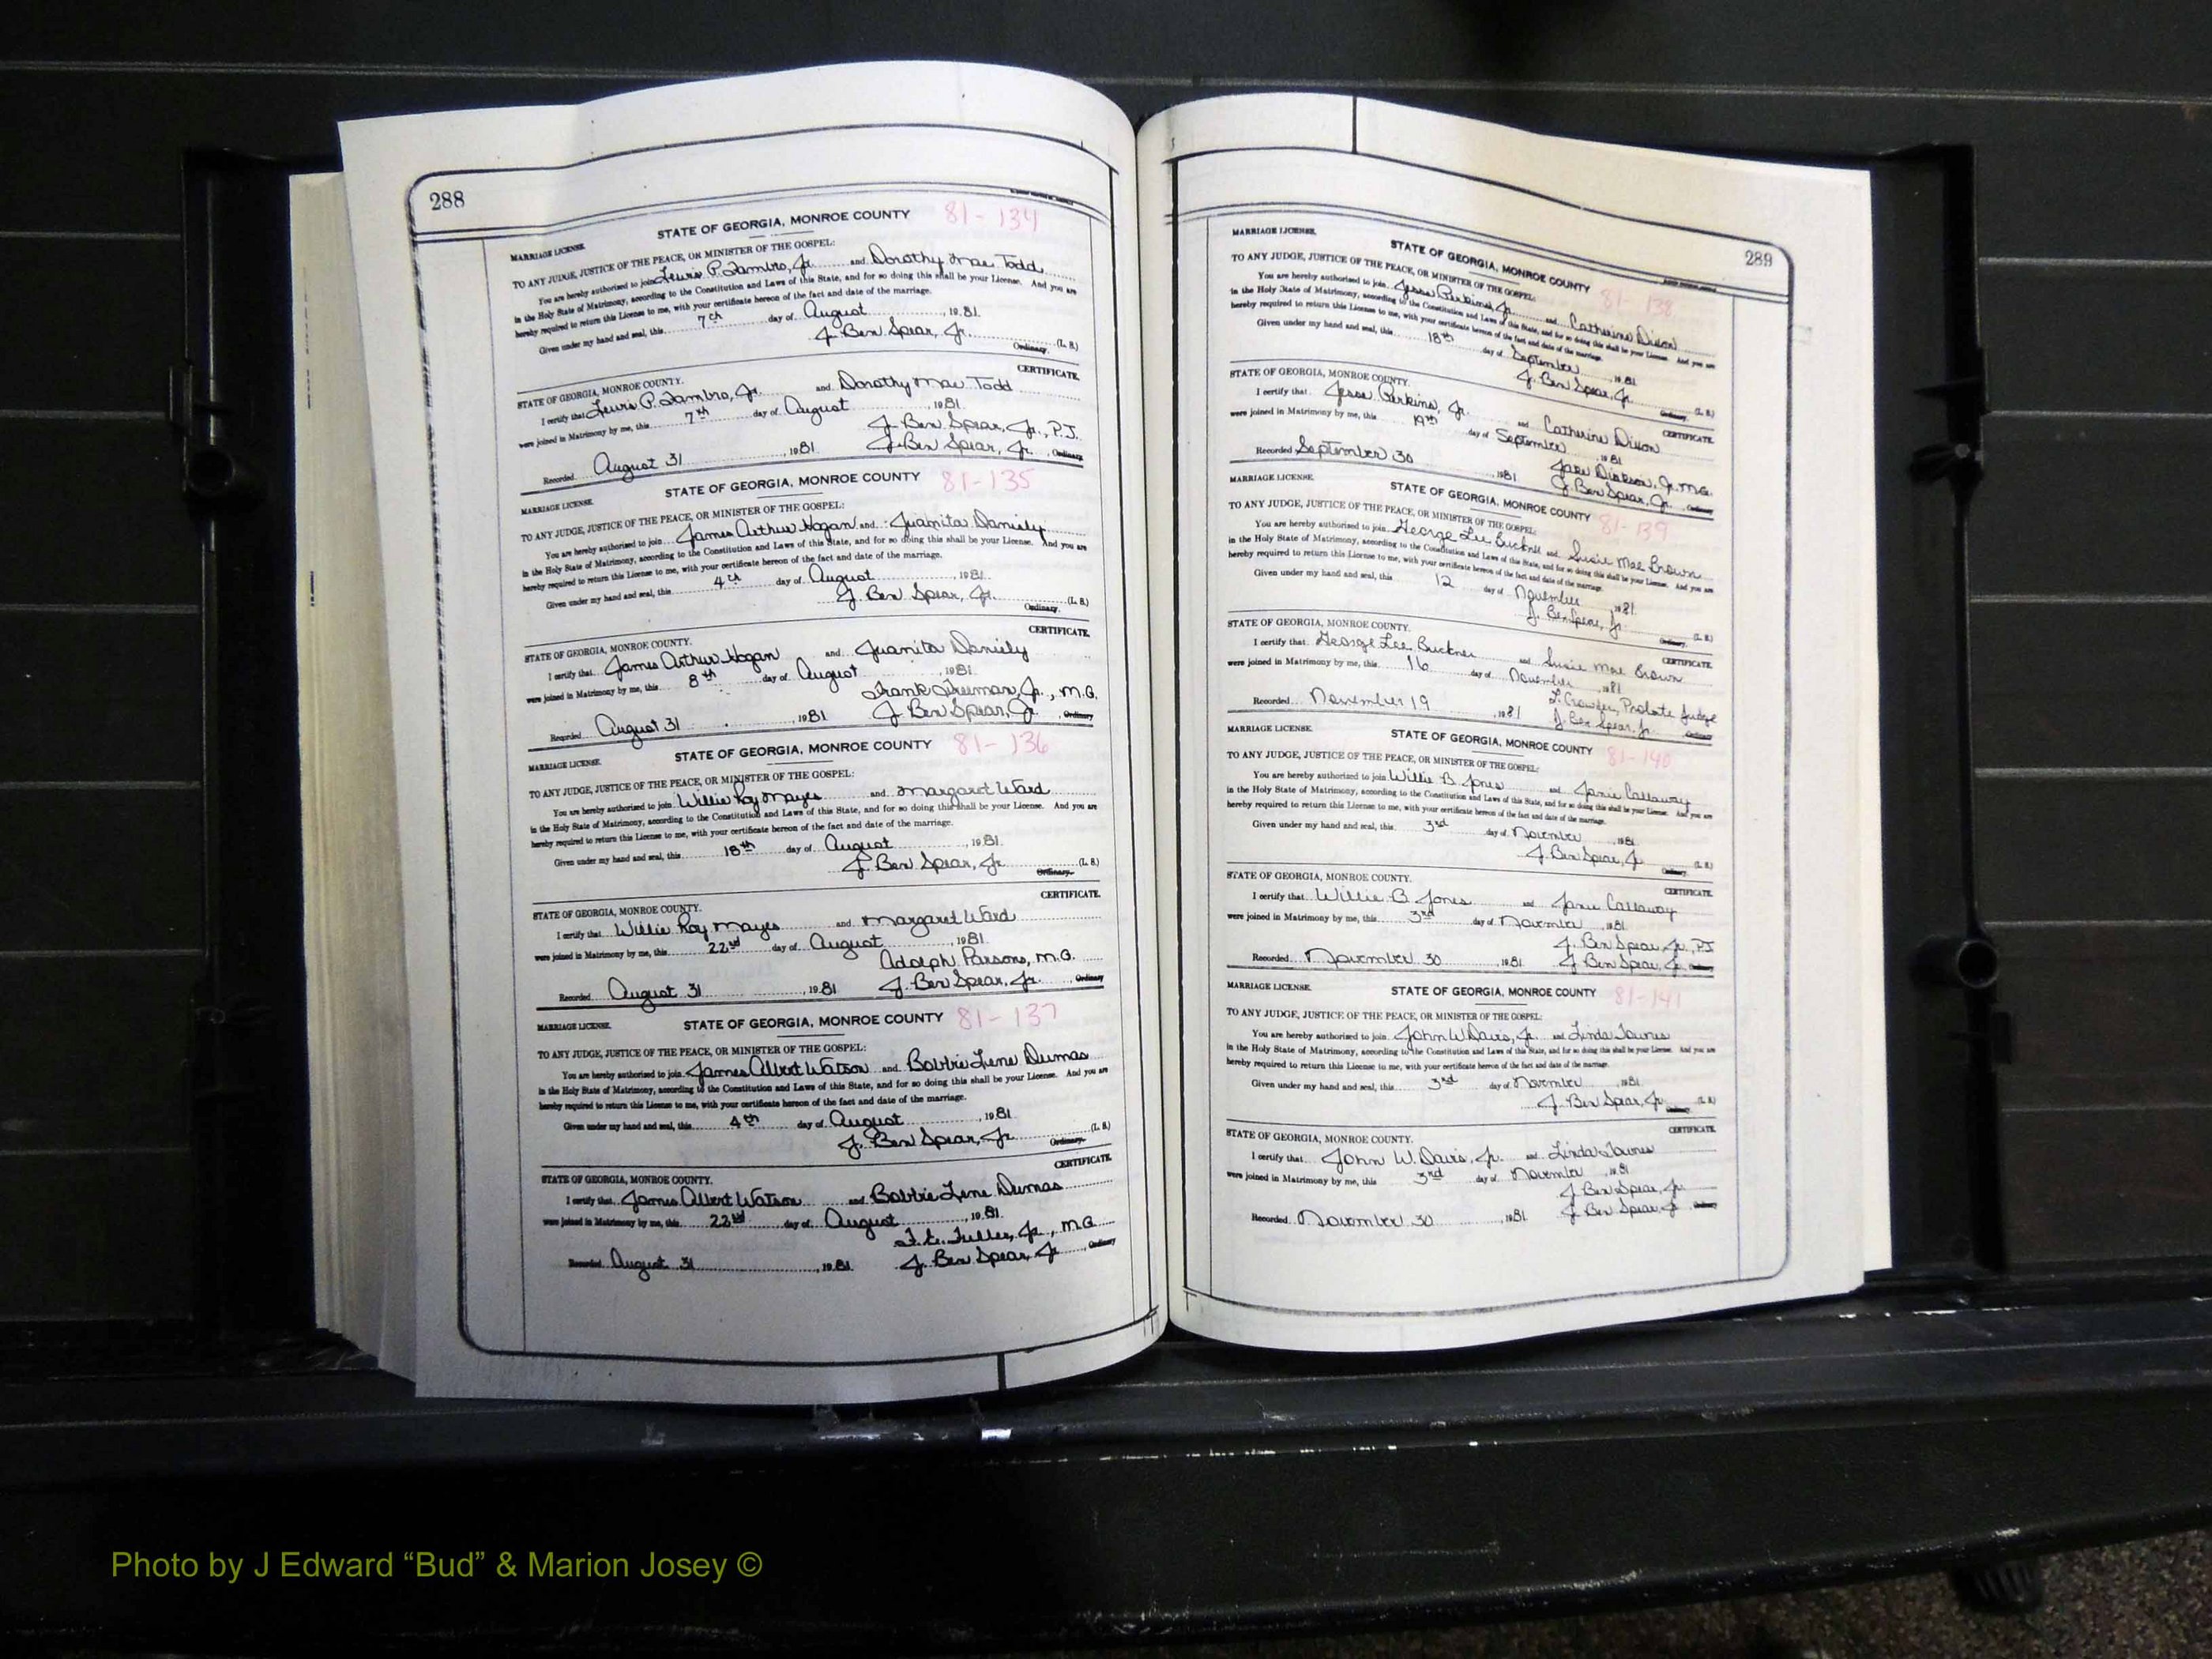 288
STATE OF GEORGIA, MONROE COUNTY 81-134
MARRIAGE LICENSE.
TO ANY JUDGE, JUSTICE OF THE PEACE, OR MINISTER OF THE GOSPEL:
You are hereby authorised to join Lewis P. Zambro, Jr. and Dorothy Mae Todd
in the Holy State of Matrimony, according to the Constitution and Laws of this State, and for so doing this shall be your License. And you are
hereby required to return this License to me, with your certificate hereon of the fact and date of the marriage.
Given under my hand and seal, this 7th day of August, 1981.
J. Ben Spear, Jr. (L. S.)
Ordinary.
CERTIFICATE.
STATE OF GEORGIA, MONROE COUNTY.
I certify that Lewis P. Zambro, Jr. and Dorothy Mae Todd
were joined in Matrimony by me, this 7th day of August 1981.
J. Ben Spear, Jr., P.J.
Recorded August 31, 1981 J. Ben Spear, Jr., Ordinary
STATE OF GEORGIA, MONROE COUNTY 81-135
MARRIAGE LICENSE.
TO ANY JUDGE, JUSTICE OF THE PEACE, OR MINISTER OF THE GOSPEL:
You are hereby authorised to join James Arthur Hogan and Juanita Daniely
in the Holy State of Matrimony, according to the Constitution and Laws of this State, and for so doing this shall be your License. And you are
hereby required to return this License to me, with your certificate hereon of the fact and date of the marriage.
Given under my hand and seal, this 4th day of August, 1981.
J. Ben Spear, Jr. (L. S.)
Ordinary.
CERTIFICATE.
STATE OF GEORGIA, MONROE COUNTY.
I certify that James Arthur Hogan and Juanita Daniely
were joined in Matrimony by me, this 8th day of August, 1981.
Frank Freeman, Jr., M.G.
Recorded August 31, 1981 J. Ben Spear, Jr., Ordinary
STATE OF GEORGIA, MONROE COUNTY 81-136
MARRIAGE LICENSE.
TO ANY JUDGE, JUSTICE OF THE PEACE, OR MINISTER OF THE GOSPEL:
You are hereby authorised to join Willie Roy Mayes and Margaret Ward
in the Holy State of Matrimony, according to the Constitution and Laws of this State, and for so doing this shall be your License. And you are
hereby required to return this License to me, with your certificate hereon of the fact and date of the marriage.
Given under my hand and seal, this 18th day of August, 1981.
J. Ben Spear, Jr. (L. S.)
Ordinary.
CERTIFICATE.
STATE OF GEORGIA, MONROE COUNTY.
I certify that Willie Roy Mayes and Margaret Ward
were joined in Matrimony by me, this 22nd day of August, 1981.
Adolph Parsons, M.G.
Recorded August 31, 1981 J. Ben Spear, Jr., Ordinary
STATE OF GEORGIA, MONROE COUNTY 81-137
MARRIAGE LICENSE.
TO ANY JUDGE, JUSTICE OF THE PEACE, OR MINISTER OF THE GOSPEL:
You are hereby authorised to join James Albert Watson and Bobbie Lene Dumas
in the Holy State of Matrimony, according to the Constitution and Laws of this State, and for so doing this shall be your License. And you are
hereby required to return this License to me, with your certificate hereon of the fact and date of the marriage.
Given under my hand and seal, this 4th day of August, 1981.
J. Ben Spear, Jr. (L. S.)
Ordinary.
CERTIFICATE
STATE OF GEORGIA, MONROE COUNTY.
I certify that James Albert Watson and Bobbie Lene Dumas
were joined in Matrimony by me, this 22nd day of August, 1981.
Fuller, Jr., M.G.
Recorded August 31, 1981 J. Ben Spear, Jr., Ordinary
289
MARRIAGE LICENSE.
STATE OF GEORGIA, MONROE COUNTY 81-138
TO ANY JUDGE, JUSTICE OF THE PEACE, OR MINISTER OF THE GOSPEL:
You are hereby authorised to join Jesse Perkins, Jr. and Catherine Dixon
in the Holy State of Matrimony, according to the Constitution and Laws of this State, and for so doing this shall be your License. And you are
hereby required to return this License to me, with your certificate hereon of the fact and date of the marriage.
Given under my hand and seal, this 18th day of September, 1981
J. Ben Spear, Jr. (L. S.)
Ordinary.
STATE OF GEORGIA, MONROE COUNTY.
CERTIFICATE.
I certify that Jesse Perkins, Jr. and Catherine Dixon
were joined in Matrimony by me, this 19th day of September, 1981
Jake Dickson, Jr. M.G.
Recorded September 30, 1981 J. Ben Spear, Jr. Ordinary
MARRIAGE LICENSE.
STATE OF GEORGIA, MONROE COUNTY 81-139
TO ANY JUDGE, JUSTICE OF THE PEACE, OR MINISTER OF THE GOSPEL:
You are hereby authorised to join George Lee Buckner and Susie Mae Brown
in the Holy State of Matrimony, according to the Constitution and Laws of this State, and for so doing this shall be your License. And you are
hereby required to return this License to me, with your certificate hereon of the fact and date of the marriage.
Given under my hand and seal, this 12 day of November, 1981.
J. Ben Spear, Jr. (L. S.)
Ordinary.
STATE OF GEORGIA, MONROE COUNTY.
CERTIFICATE.
I certify that George Lee Buckner and Susie Mae Brown
were joined in Matrimony by me, this 16 day of November, 1981
L. Crowder, Probate Judge
Recorded November 19, 1981 J. Ben Spear, Jr. Ordinary
MARRIAGE LICENSE.
STATE OF GEORGIA, MONROE COUNTY 81-140
TO ANY JUDGE, JUSTICE OF THE PEACE, OR MINISTER OF THE GOSPEL:
You are hereby authorised to join Willie B. Jones and Janie Callaway
in the Holy State of Matrimony, according to the Constitution and Laws of this State, and for so doing this shall be your License. And you are
hereby required to return this License to me, with your certificate hereon of the fact and date of the marriage.
Given under my hand and seal, this 3rd day of November, 1981.
J. Ben Spear, Jr. (L. S.)
Ordinary.
STATE OF GEORGIA, MONROE COUNTY.
CERTIFICATE.
I certify that Willie B. Jones and Janie Callaway
were joined in Matrimony by me, this 3rd day of November, 1981.
J. Ben Spear, Jr., P.J.
Recorded November 30, 1981. J. Ben Spear, Jr. Ordinary
MARRIAGE LICENSE.
STATE OF GEORGIA, MONROE COUNTY 81-141
TO ANY JUDGE, JUSTICE OF THE PEACE, OR MINISTER OF THE GOSPEL:
You are hereby authorised to join John W. Davis, Jr. and Linda Townes
in the Holy State of Matrimony, according to the Constitution and Laws of this State, and for so doing this shall be your License. And you are
hereby required to return this License to me, with your certificate hereon of the fact and date of the marriage.
Given under my hand and seal, this 3rd day of November, 1981
J. Ben Spear, Jr. (L. S.)
Ordinary.
STATE OF GEORGIA, MONROE COUNTY.
CERTIFICATE.
I certify that John W. Davis, Jr. and Linda Townes
were joined in Matrimony by me, this 3rd day of November, 1981
J. Ben Spear, Jr.
Recorded November 30, 1981 J. Ben Spear, Jr. Ordinary
Photo by J Edward “Bud” & Marion Josey ©